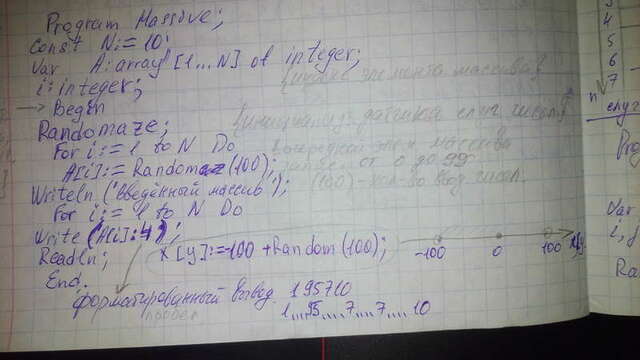 Program Massive;
Const N:=10;
Var A:array [1...N] of integer;
i:integer; {индекс элемента массива}
Begin
Randomaze; {инициализ. датчика случ чисел}
For i:=1 to N Do в очередной элем массива
A[i]:=Random(100); от 0 до 99
Writeln ('Введённый массив'); (100) - кол-во чисел.
For i:=1 to N Do
Write (A[i]:4);
Readln; X[y]:=-100+Random(100); -100 0 100
End.
форматированный вывод 195710
пробел 1....95....7....7....10
3
4
5
6
7
n
случ
Pro
Var
i, j
Ra